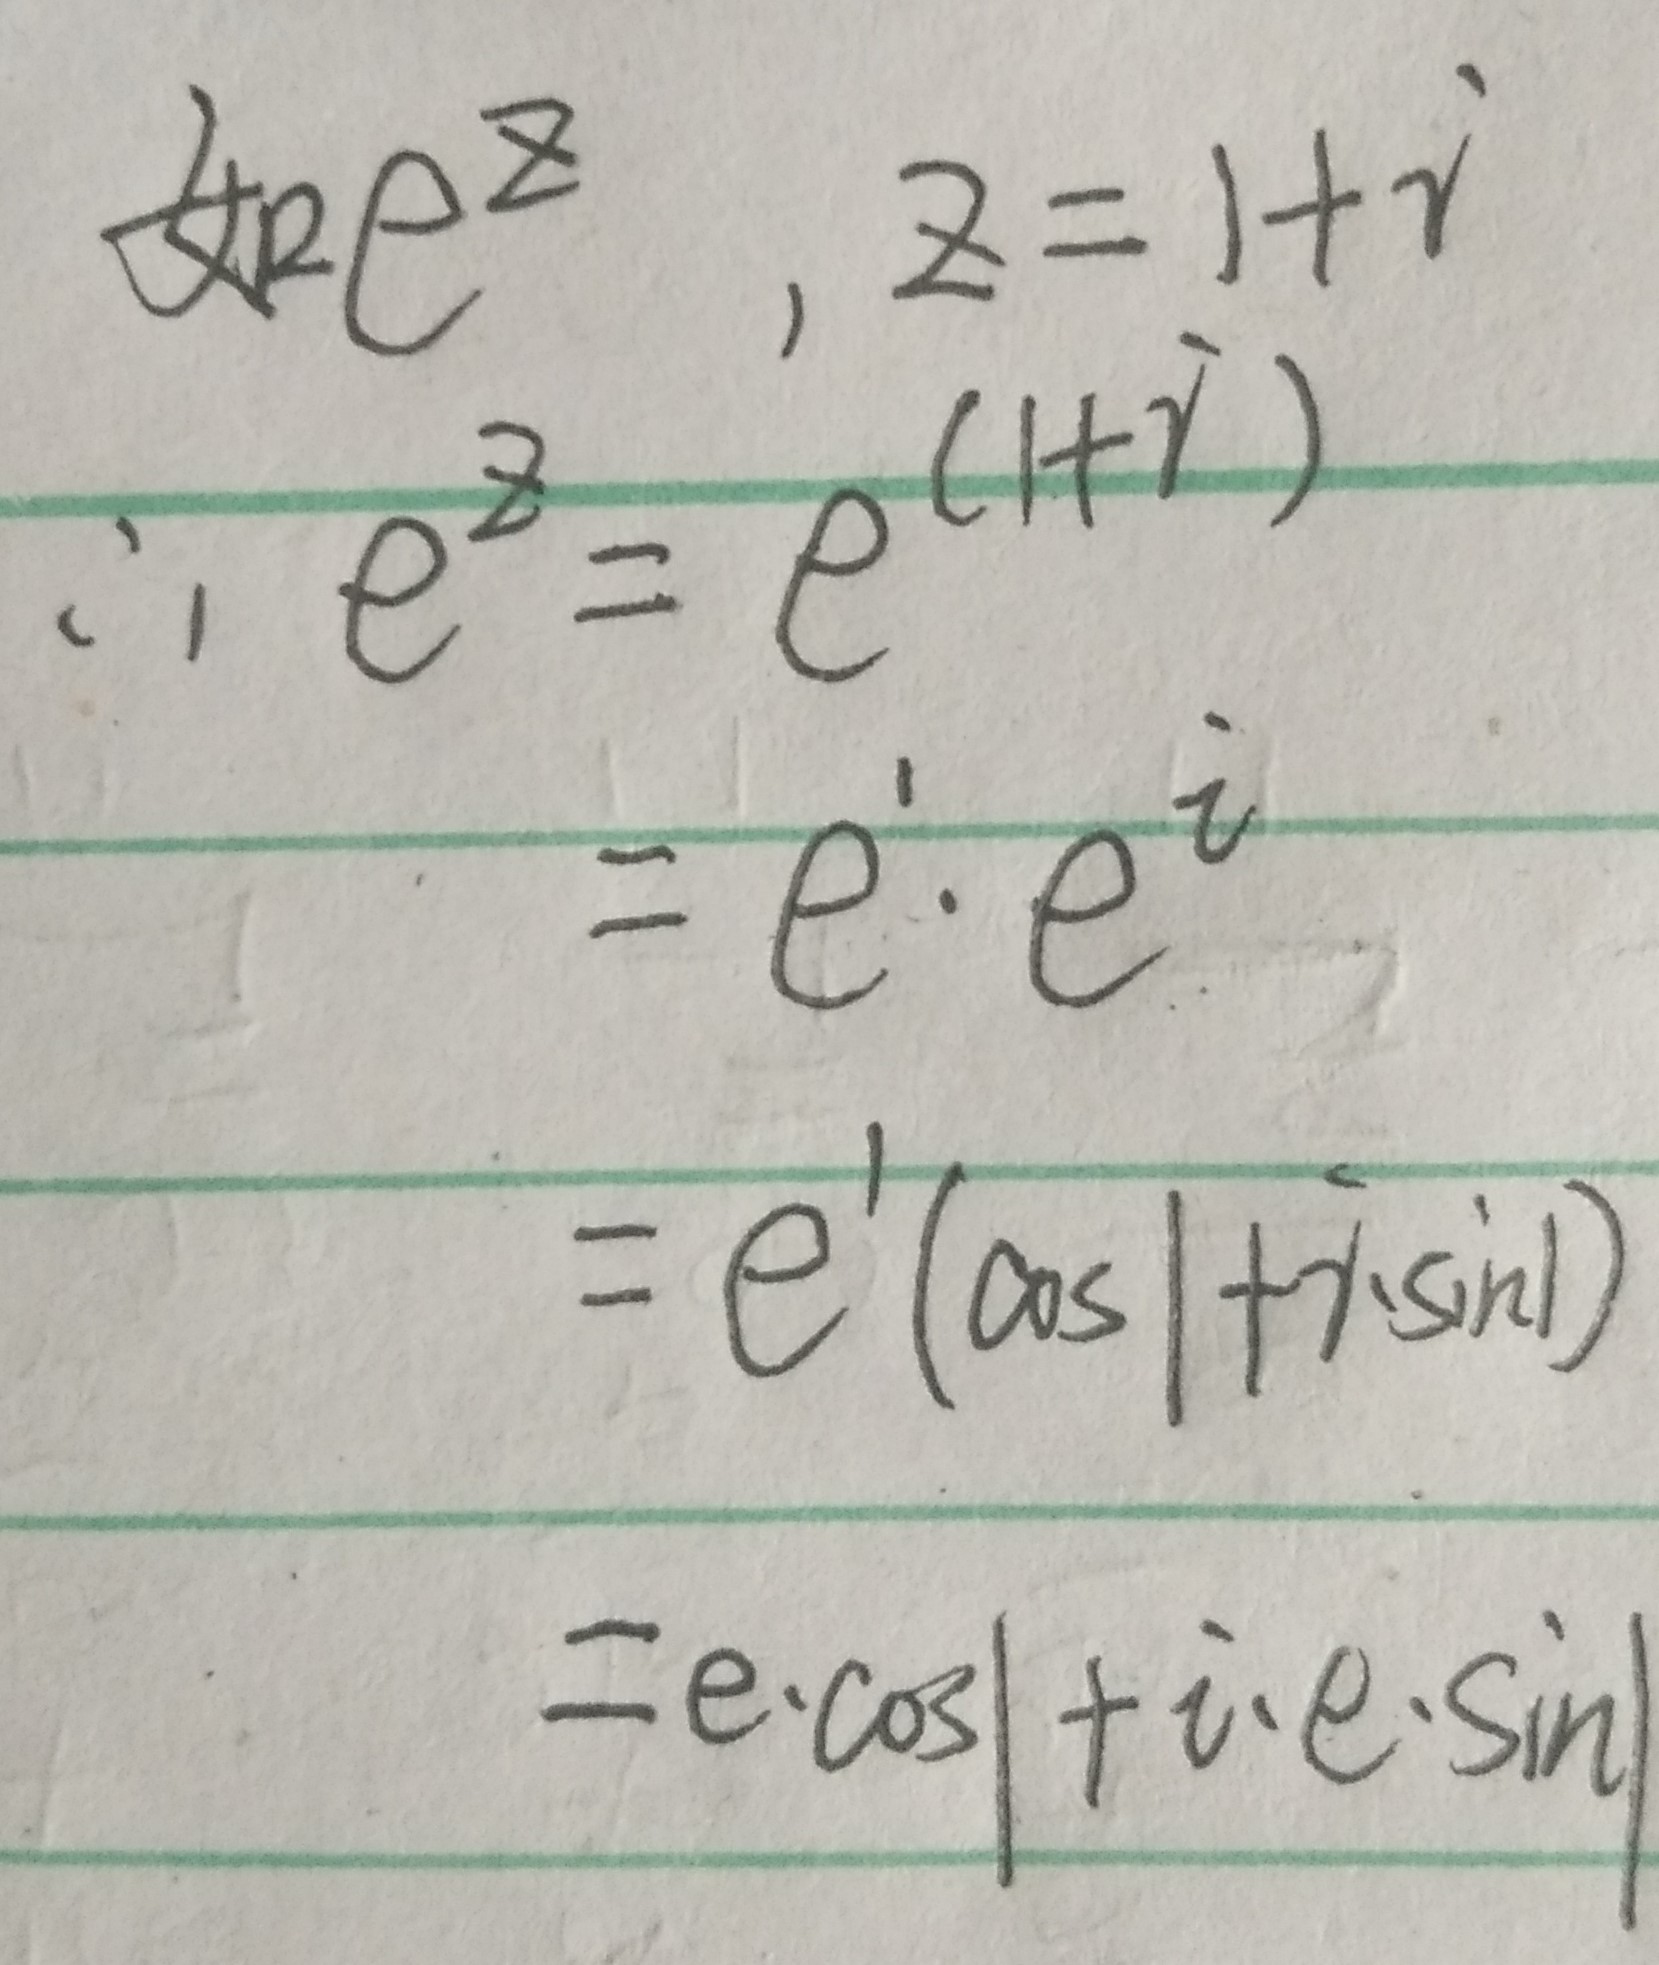 如e^z , z=1+i
∴ e^z = e^(1+i)
= e^1 · e^i
= e^1 (cos1+i·sin1)
=e·cos1+i·e·sin1